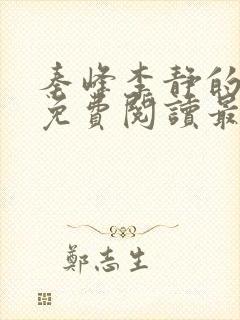 秦峰李静的
免費閱讀最
鄭志生